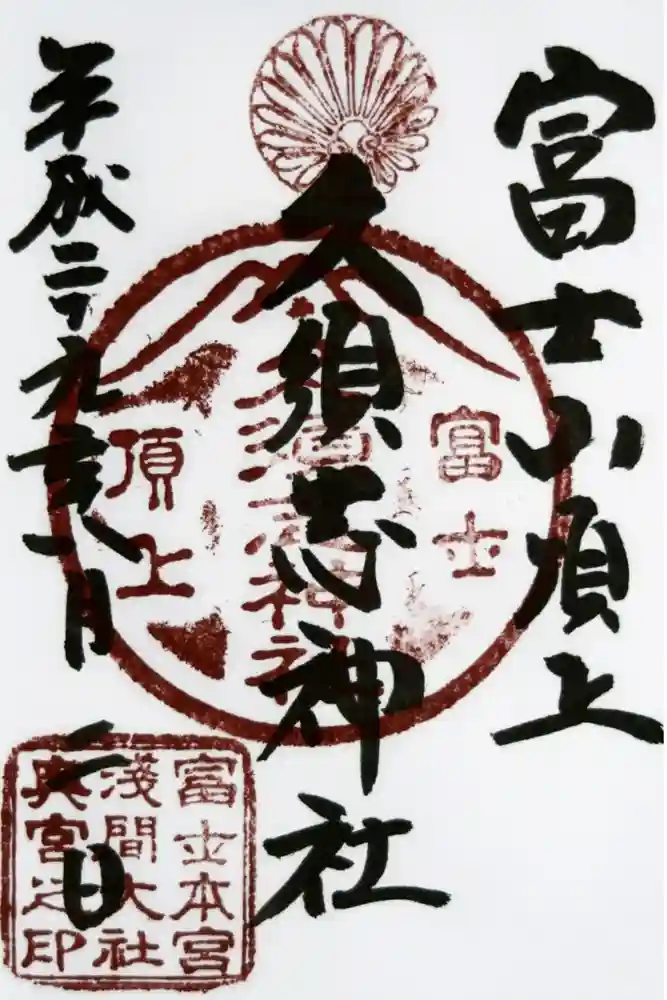 富士山頂上
久須志神社
平成二十九年八月二日
富士
久須志神社
頂上
富士本宮
浅間大社
奥宮之印